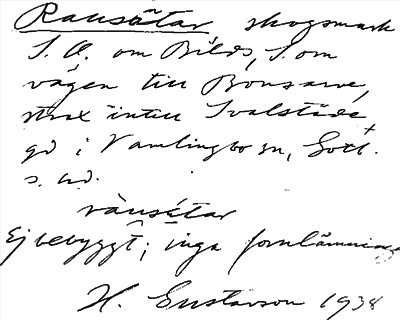 Rausätar skogsmark
S.Ö. om Bilds, S om
vägen till Bonsarve,
strax intill Svalstäde
gd i Vamlingbo sn, Gotl.
s. hd.
räusętar
Ej bebyggt; inga fornlämningar
H. Gustavson 1938